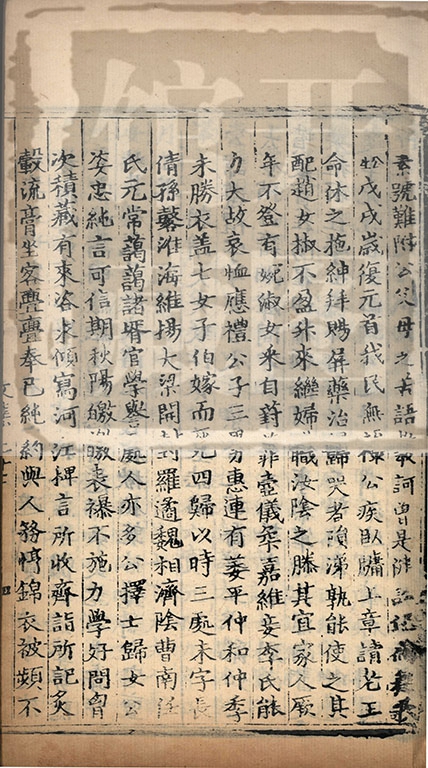 素號難附公父母之去語
於戊戌歲復元首我民無公疾臥牖上章請老王
命休之拖紳拜賜屏藥治歸哭者隕涕孰能使之其
配趙女椒不盈升來繼婦職汝陰之滕其宜家人厥
年不登有婉淑女來自莆壺儀柔嘉維妾李氏能
力大故哀恤應禮公子三男惠連有萎平仲和仲季
未勝衣盖七女子伯嫁而死四歸以時三處未字長
倩孫馨淮海維揚大梁開封羅適魏相濟陰曹南汪
氏元常藹藹諸壻官學譽處人亦多公擇士歸女公
姿忠純言可信期秋陽皦皦表襮不施力學好問胷
次積藏有來咨求傾寫河江捭言所收齊諧所記炙
轂流膏坐客亹亹奉己純約與人務惇錦衣被頻不
文集
四